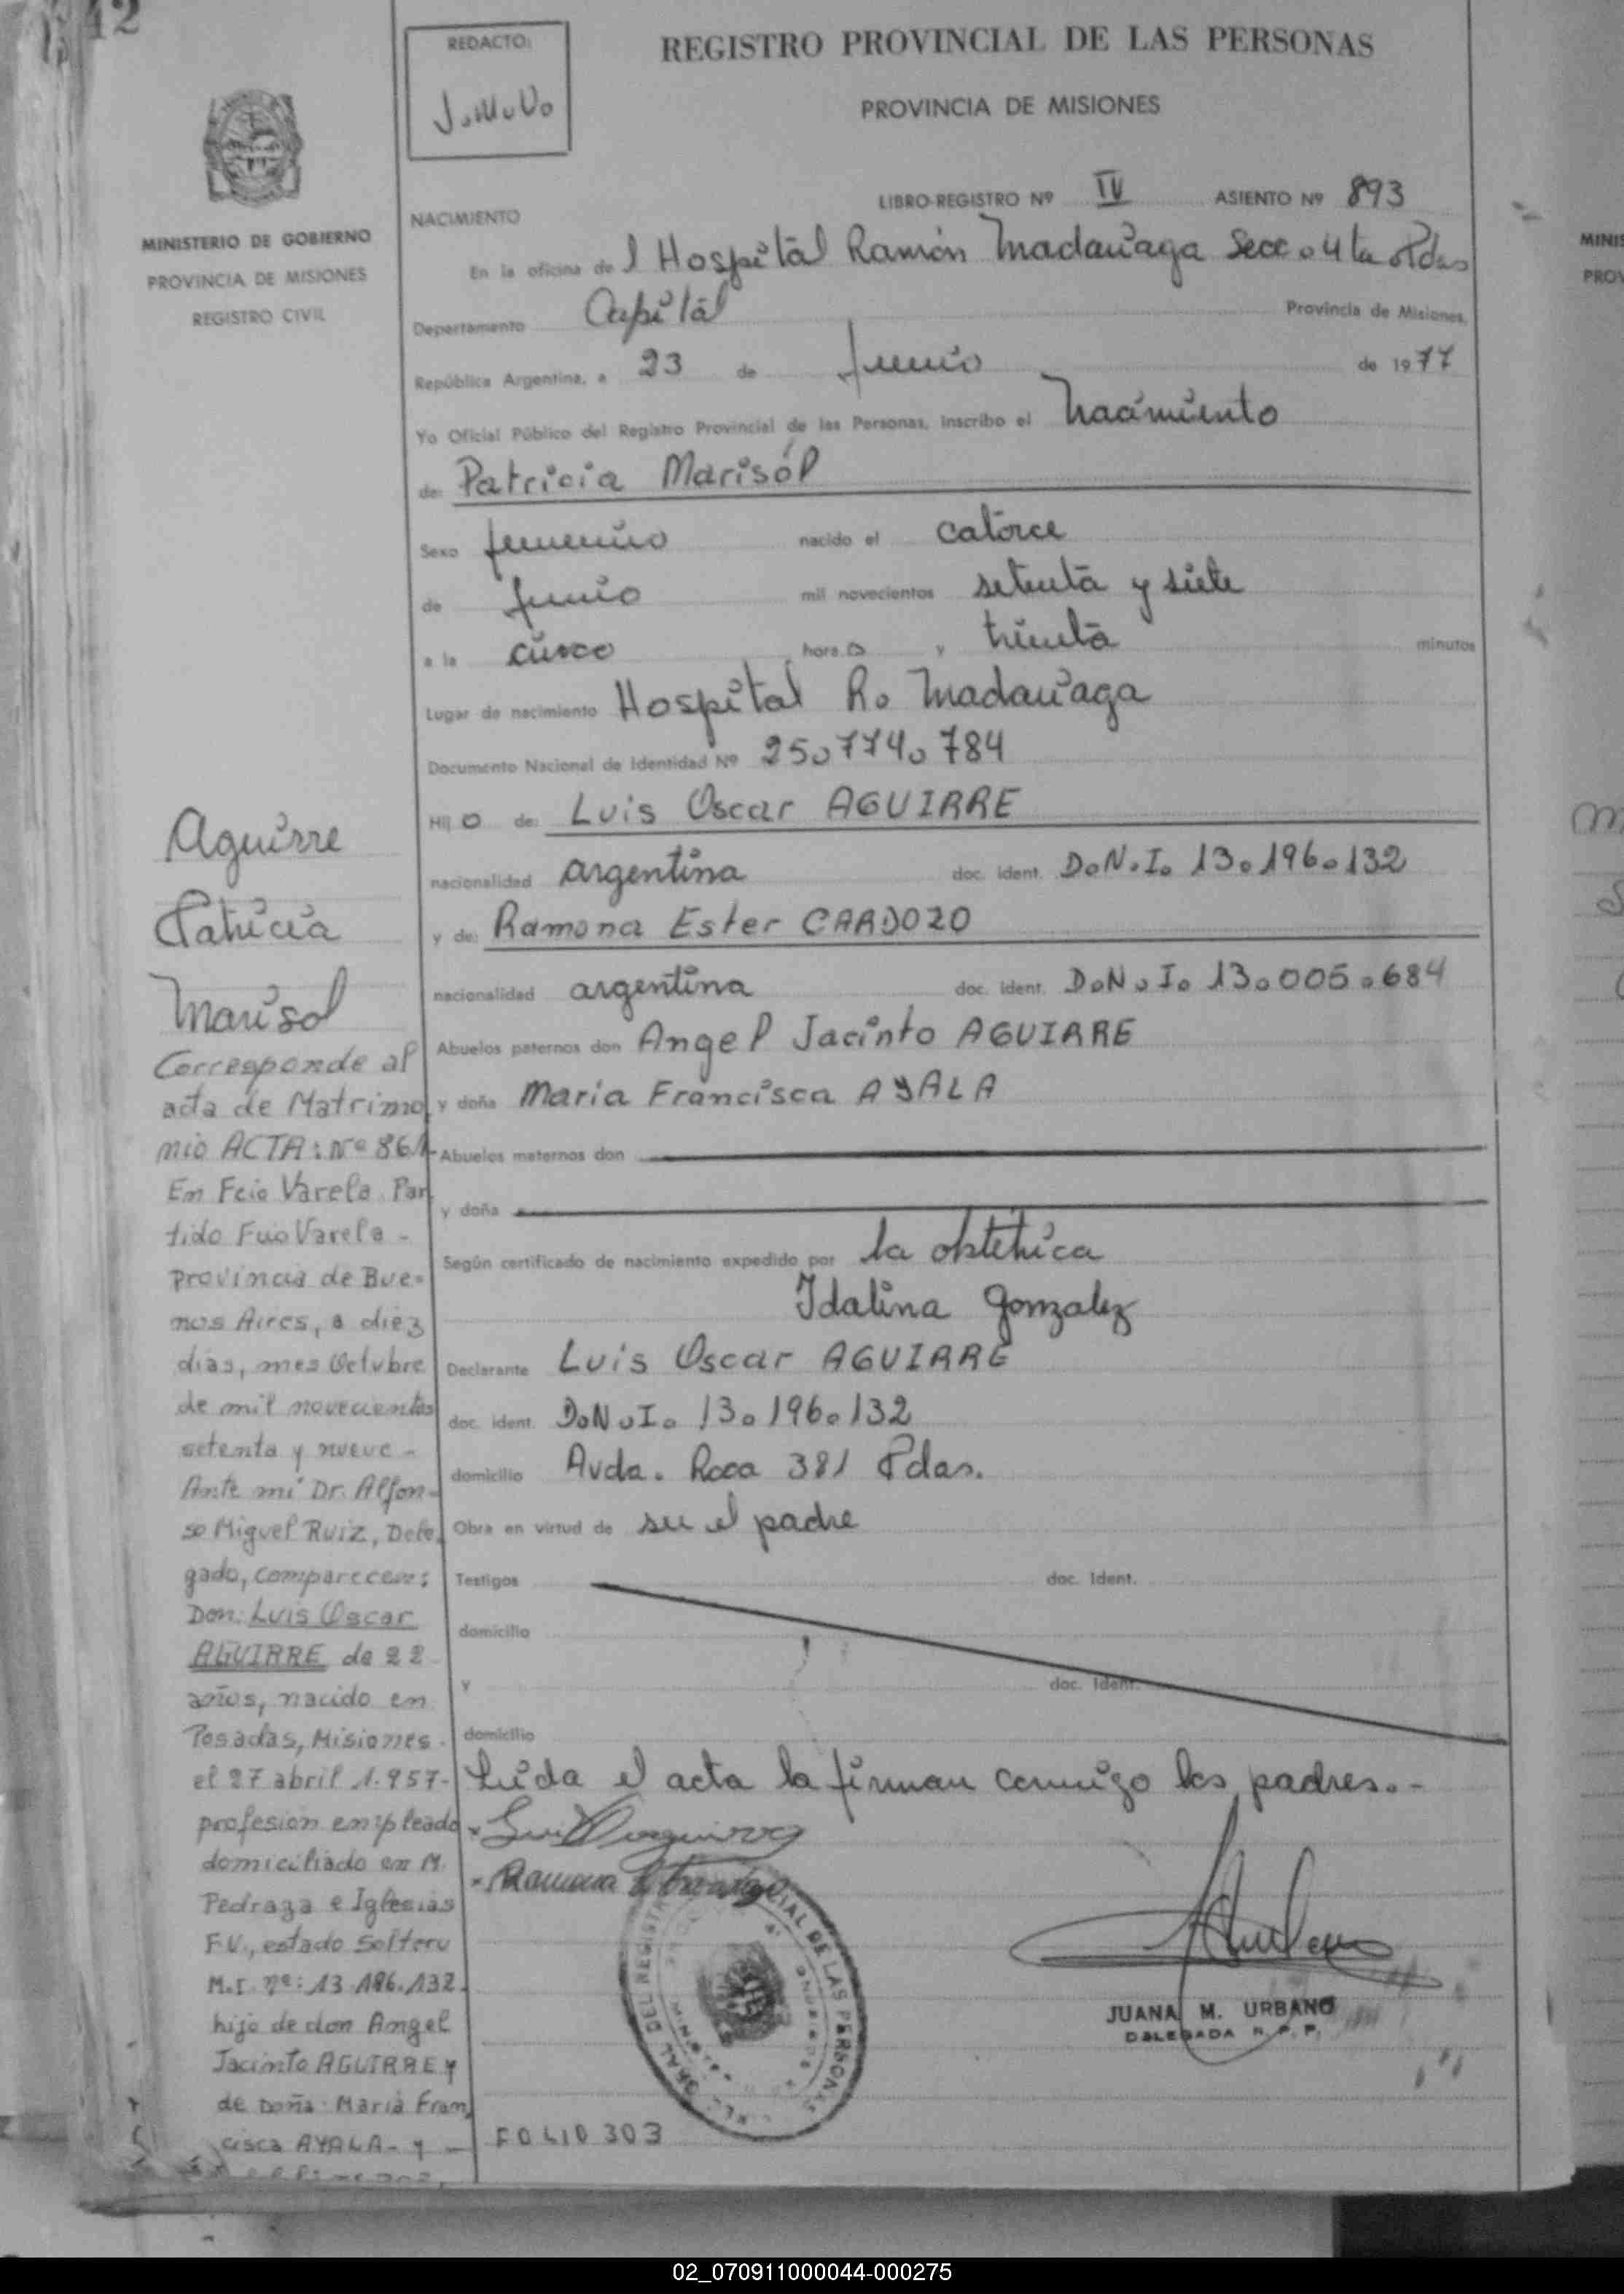 REDACTO:
J.M.U.
REGISTRO PROVINCIAL DE LAS PERSONAS
PROVINCIA DE MISIONES
MINISTERIO DE GOBIERNO
PROVINCIA DE MISIONES
REGISTRO CIVIL
LIBRO-REGISTRO Nº IV ASIENTO Nº 893
NACIMIENTO
En la oficina del Hospital Ramón Madariaga Secc. 4ta Pdas
Departamento Capital Provincia de Misiones,
República Argentina, a 23 de junio de 1977
Yo Oficial Público del Registro Provincial de las Personas, inscribo el Nacimiento
de: Patricia Marisól
Sexo femenino nacido el catorce
de junio mil novecientos setenta y siete
a la cinco horas y treinta minutos
Lugar de nacimiento Hospital R. Madariaga
Documento Nacional de Identidad Nº 25.774.784
Hijo de: Luis Oscar AGUIRRE
nacionalidad argentina doc. ident. D.N.I. 13.196.132
y de: Ramona Ester CARDOZO
nacionalidad argentina doc. ident. D.N.I. 13.005.684
Abuelos paternos don Angel Jacinto AGUIRRE
y doña Maria Francisca AYALA
Abuelos maternos don
y doña
Según certificado de nacimiento expedido por la obstétrica
Idalina Gonzalez
Declarante Luis Oscar AGUIRRE
doc. ident. D.N.I. 13.196.132
domicilio Avda. Roca 381 Pdas.
Obra en virtud de ser el padre
Testigos doc. Ident.
domicilio
y doc. Ident.
domicilio
Leída el acta la firman conmigo los padres.-
JUANA M. URBANO
DELEGADA R. P. P.
FOLIO 303
Aguirre
Patricia
Marisol
Corresponde al
acta de Matrimo
nio ACTA: Nº 861-
En Fcio Varela Par
tido Fcio Varela -
provincia de Bue=
nos Aires, a diez
dias, mes Octubre
de mil novecientos
setenta y nueve -
Ante mi Dr. Alfon=
so Miguel RUIZ, Dele
gado, comparecen:
Don: Luis Oscar
AGUIRRE de 22
años, nacido en
Posadas, Misiones -
el 27 abril 1.957-
profesion empleado
domiciliado en M.
Pedraza e Iglesias
F.V., estado Soltero
M.I. nº: 13.196.132
hijo de don Angel
Jacinto AGUIRRE y
de Doña: Maria Fran
cisca AYALA - y -
02_070911000044-000275